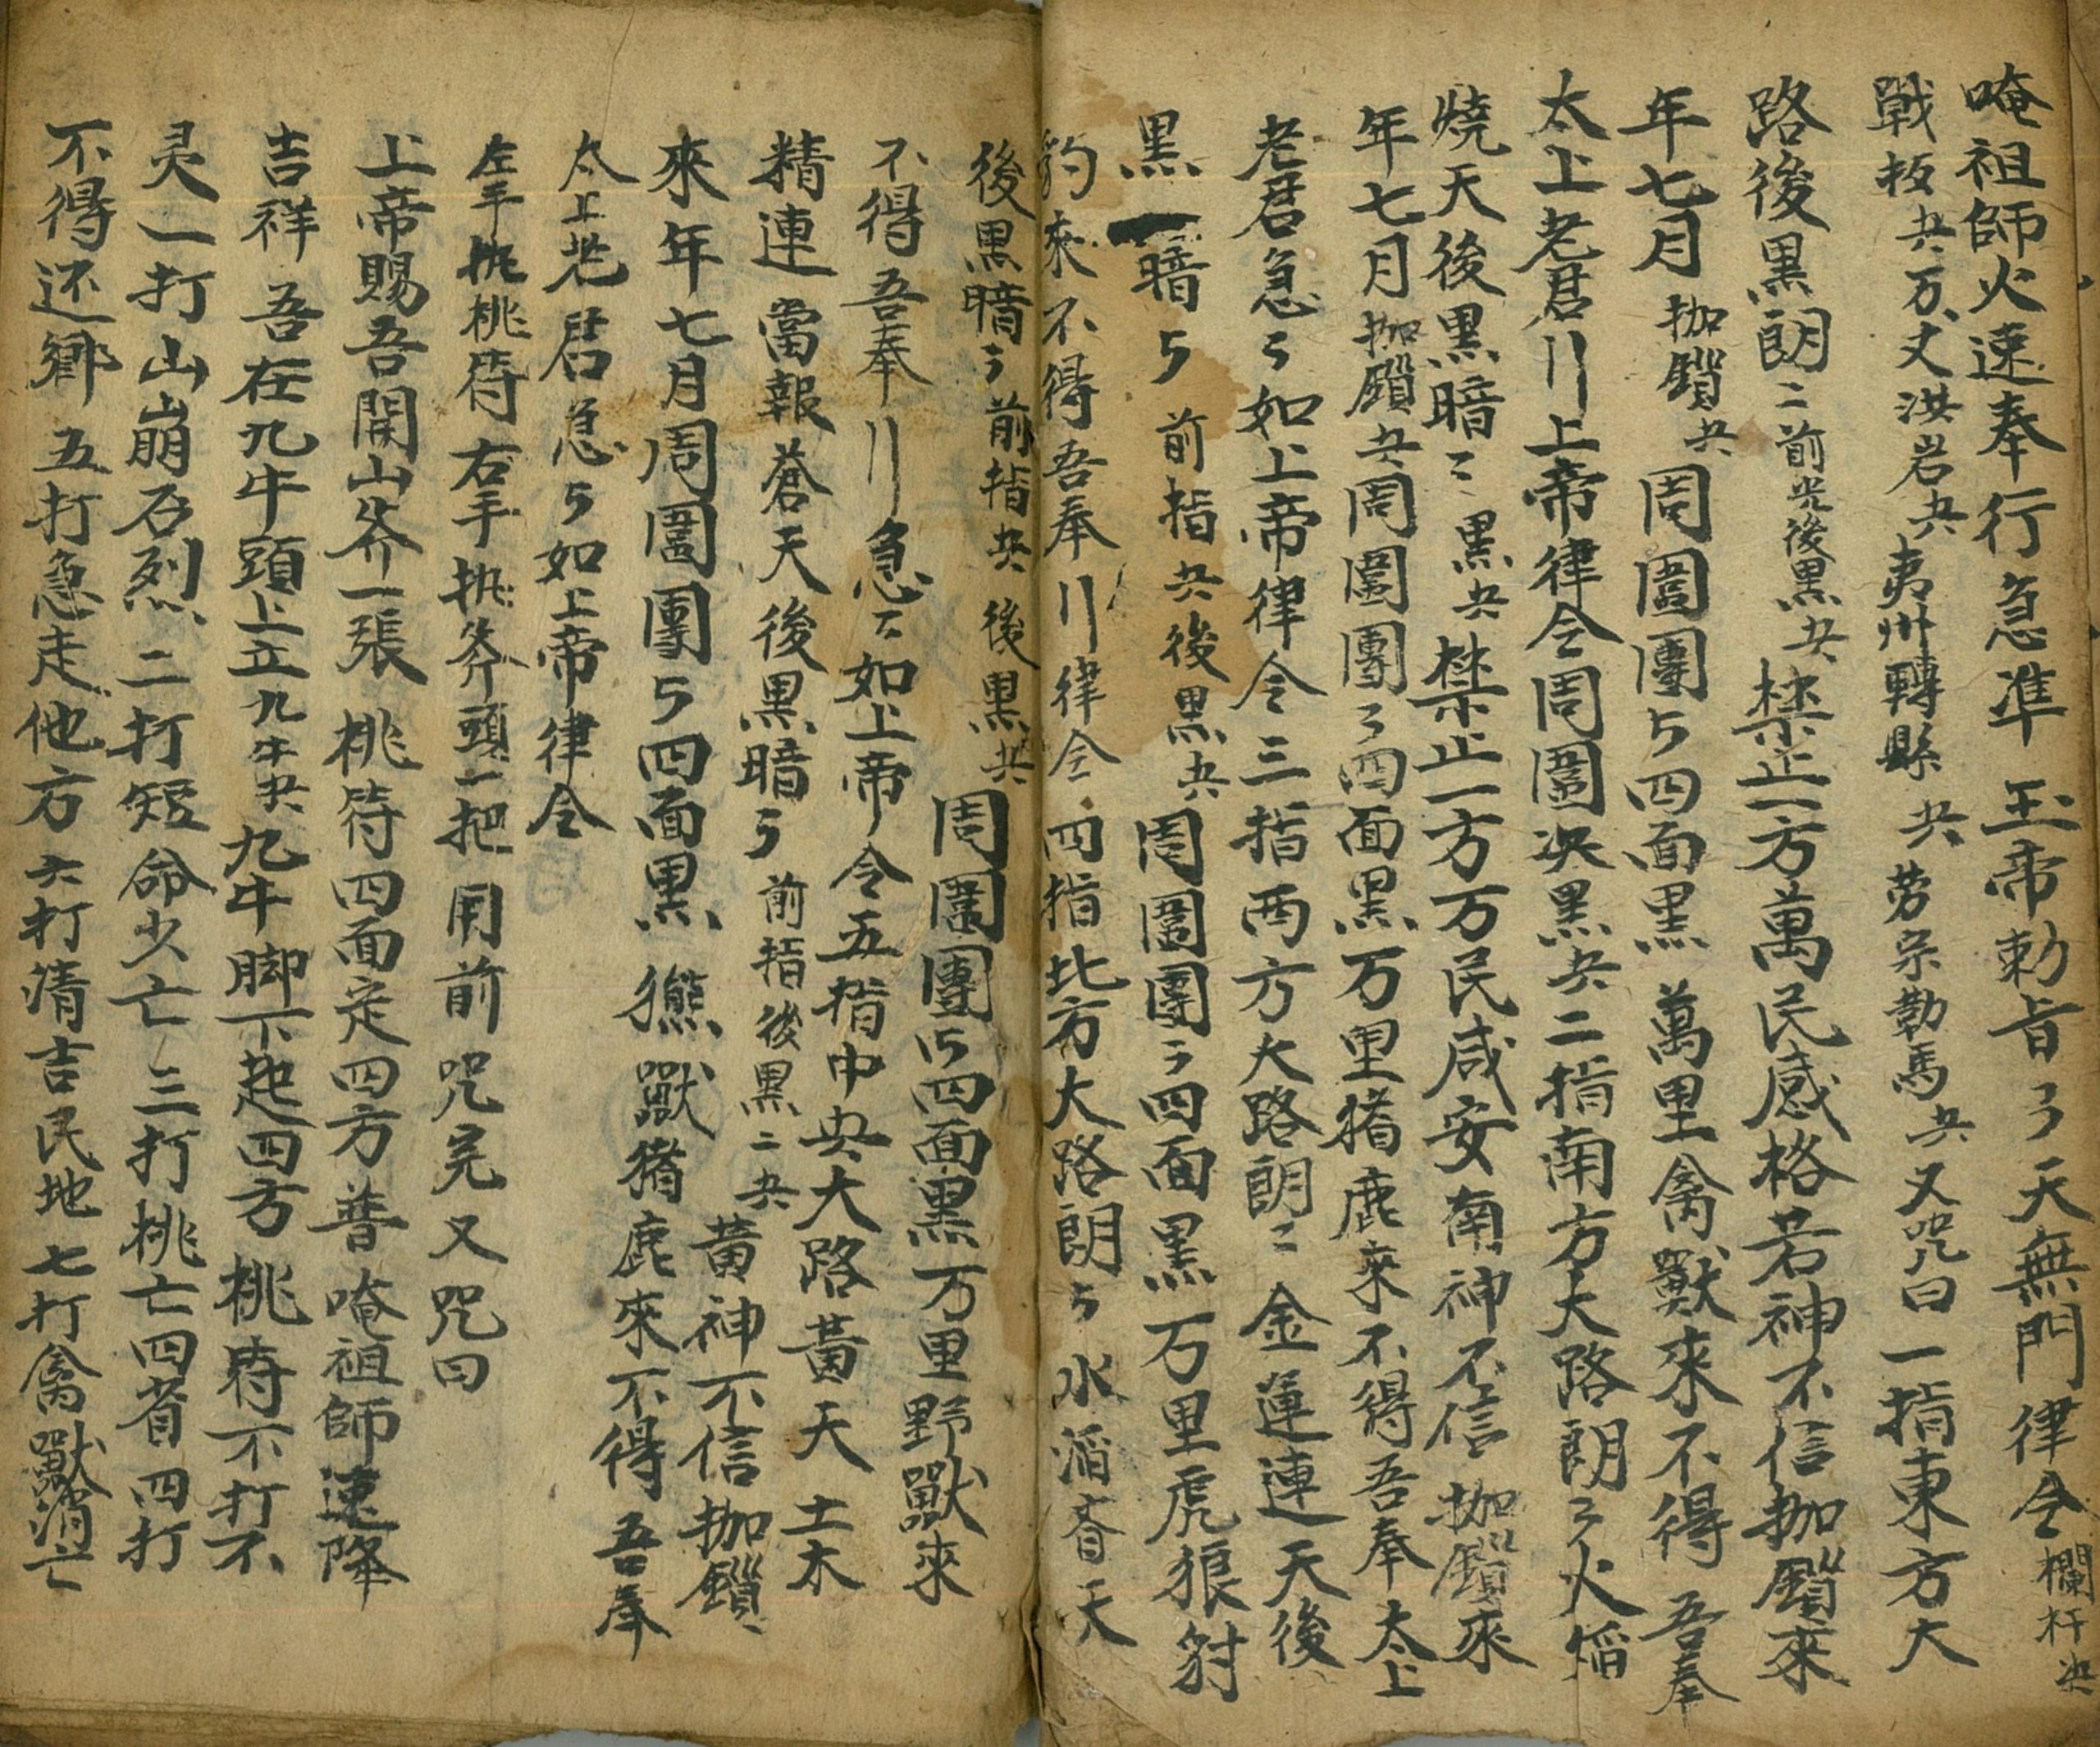 唵祖師火速奉行急準 玉帝勅旨〻天無門律令欄杆决
戰板共万丈洪岩共夷州轉縣共 劳宗勒馬共又咒曰一指東方大
路後黒朗〻前光後黒共 禁止一方萬民感格若神不信枷鎖來
年七月枷鎖共 周圍團〻四面黒 萬里禽獸來不得 吾奉
太上老君〢上帝律令周圍决黒共二指南方大路朗〻火焰
燒天後黒暗〻黒共禁止一方万民咸安南神不信枷鎖來
年七月枷鎖共周圍團〻四面黒万里猪鹿來不得吾奉太上
老君急〻如上帝律令三指西方大路朗〻金蓮連天後
黒暗〻前指共後黒共周圍團〻四面黒万里虎狼豺
豹來不得吾奉〢律令四指北方大路朗〻水滔 天
後黒暗〻前指共後黒共 周圍團〻四面黒万里野獸來
不得吾奉〢急〻如上帝令五指中央大路黃天 土木
精連當報蒼天後黒暗〻前指後黒二共黃神不信枷鎖
來年七月周圍團〻四面黒 獸猪鹿來不得 吾奉
太上老君急〻如上帝律令
左手执桃符右手执斧頭一把用前咒完又咒曰
上帝賜吾開山斧一張 桃符四面定四方普唵祖師速降
吉祥 吾在九牛頭上立九牛共九牛脚下起四方 桃符不打不
灵一打山崩石烈二打短命少亡三打桃亡四省四打
不得还鄉五打急走他方六打清吉民地七打禽獸消亡